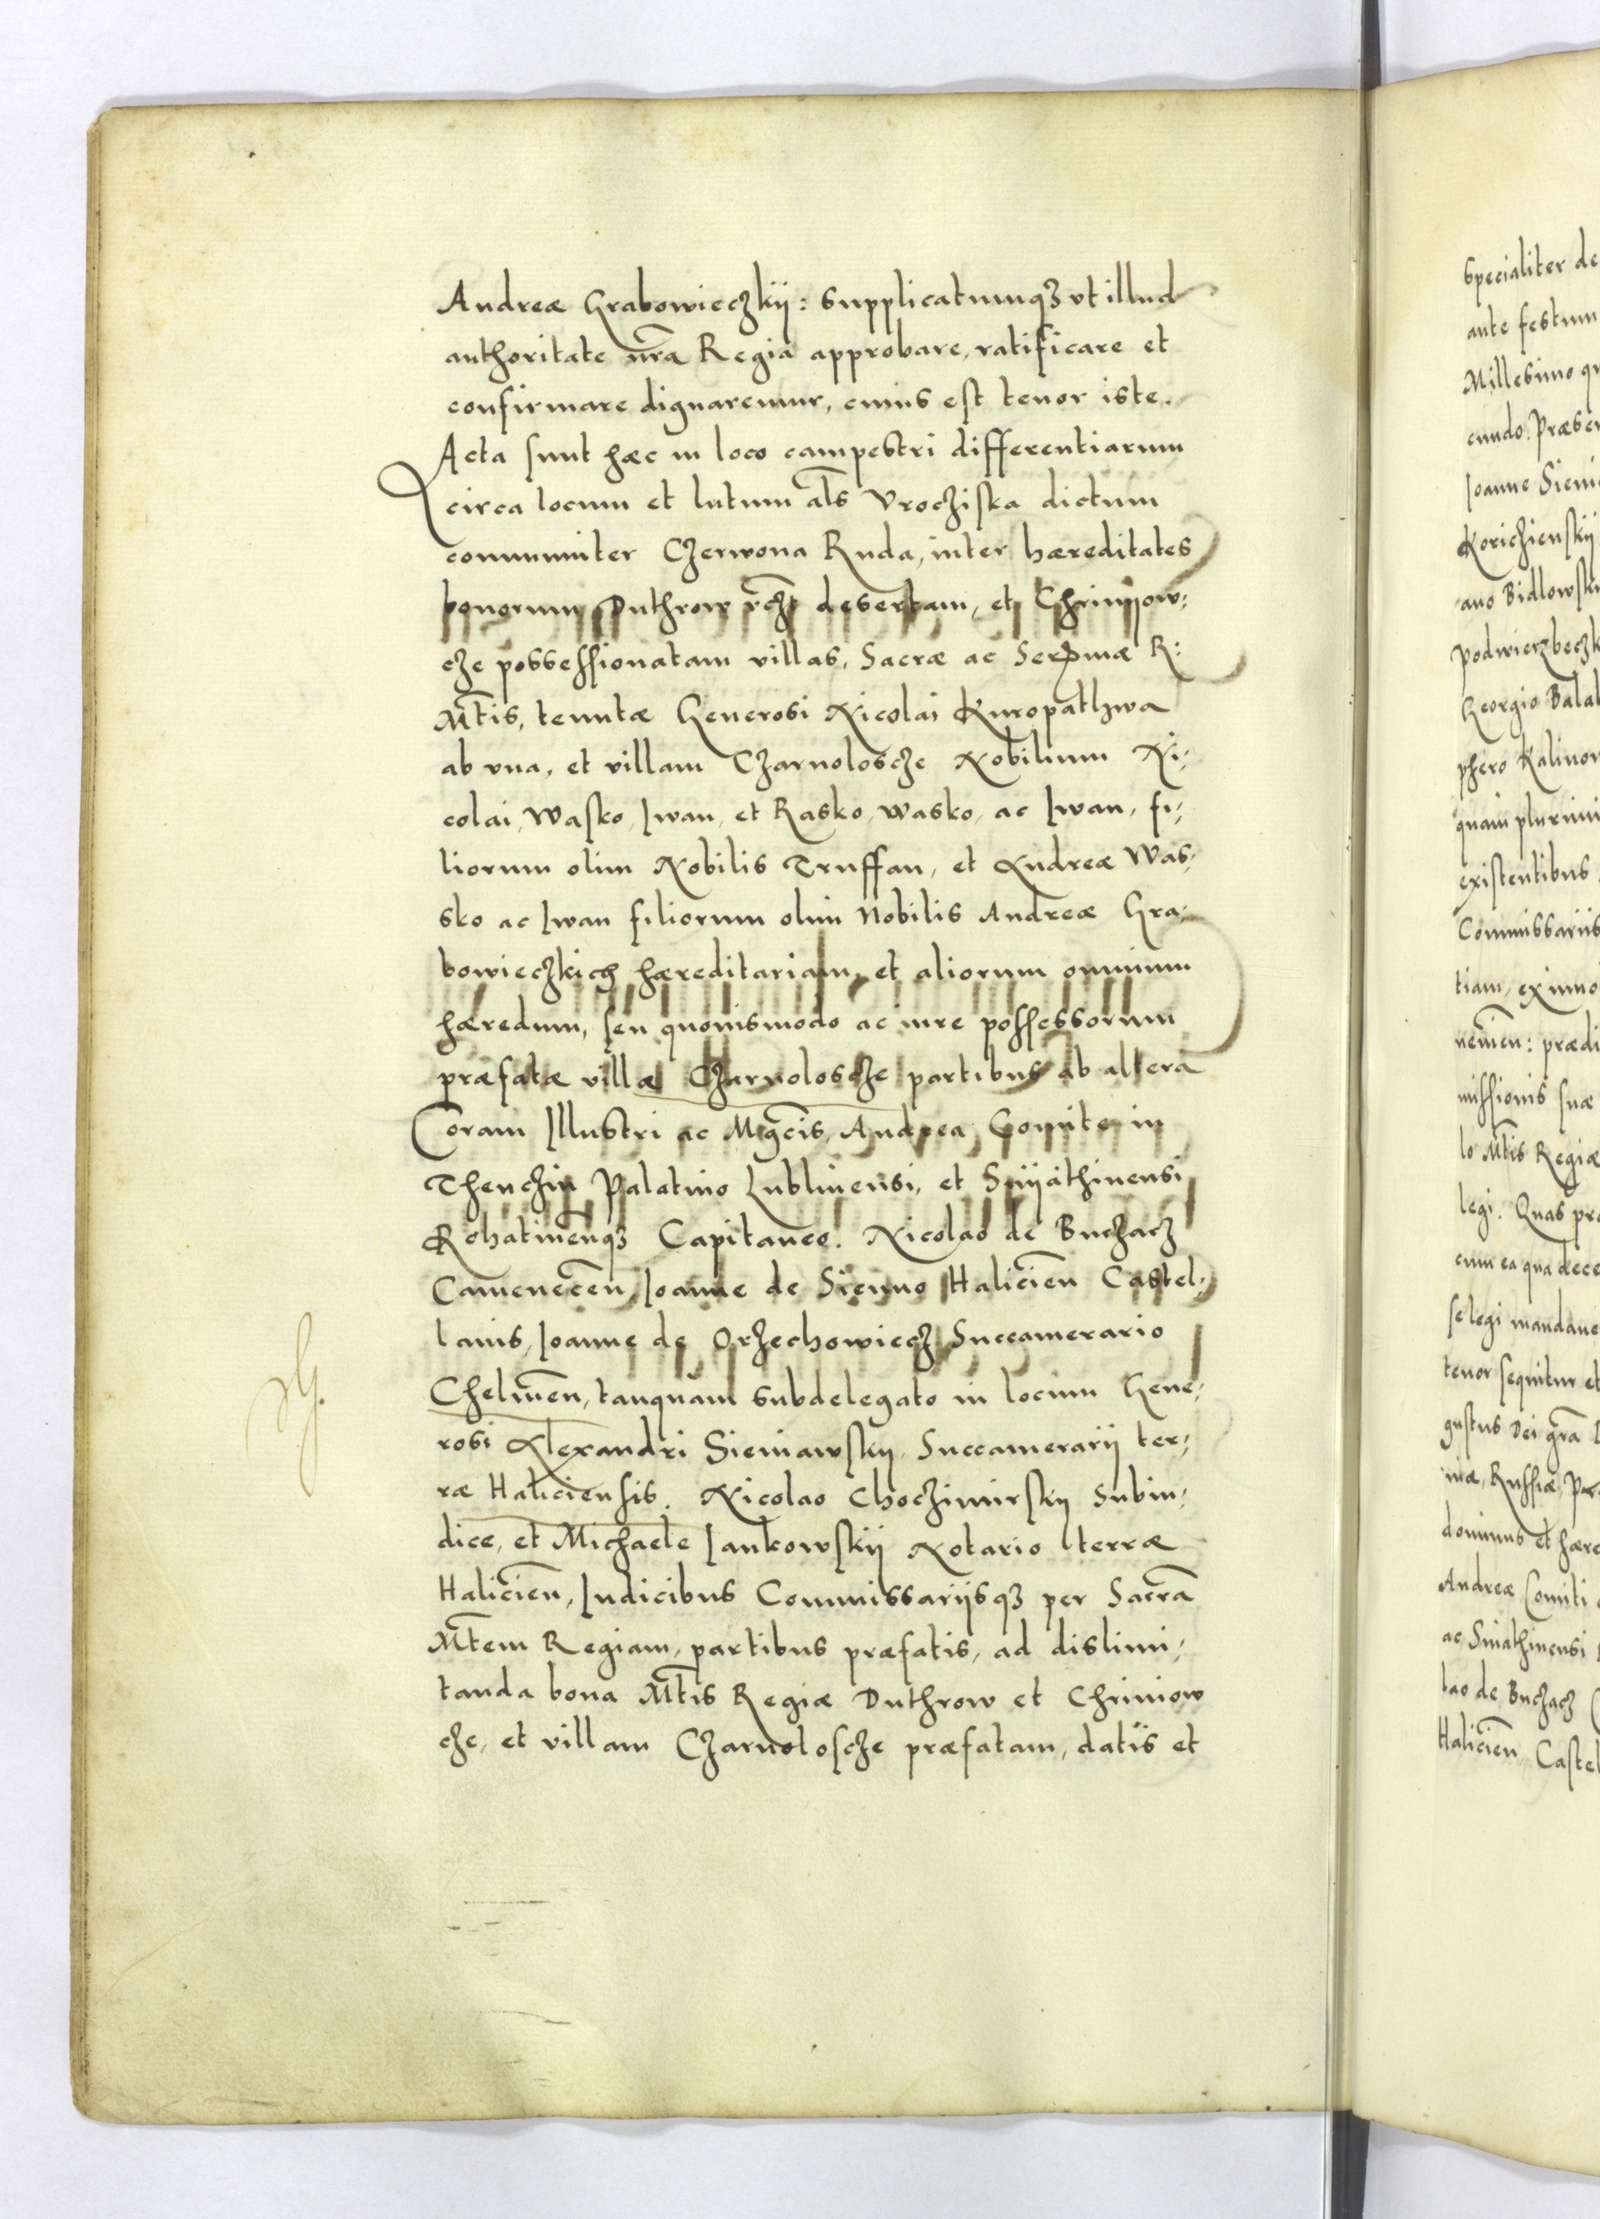 Andreæ Grabowieczkij: Supplicatumqȝ vt illud
authoritate nr̃a Regia approbare, ratificare et
confirmare dignaremur, cuius est tenor iste.
Acta sunt hæc in loco campestri differentiarum
circa locum et lutum al̃s Vrocziska dictum
communiter Czerwona Ruda, inter hæreditates
bonorum Duthrow desertam, et Chrimijow:
cze possessionatam villas, Sacræ ac Sermæ R:
Mt̃is, tenutæ Generosi Nicolai Kuropathwa
ab vna, et villam Czarnoloscze Nobilium Ni:
colai, Wasko, Iwan, et Rasko, Wasko, ac Iwan, fi:
liorum olim Nobilis Truffan, et Andreæ Was:
sko ac Iwan filiorum olim Nobilis Andreæ Gra:
bowieczkich hæreditariam, et aliorum omnium
hæredum, seu quouismodo ac iure possessorum
præfatæ villæ Czarnoloscze partibus ab altera
Coram Illustri ac Mgc̃is, Andrea Comite in
Thenczin Palatino Lublinensi, et Snijathinensi
Rohatineñqȝ Capitaneo. Nicolao de Buczacz
Cameneceñ, Ioanne de Sienno Halicieñ Castel:
lanis, Ioanne de Orzechowiecz Succamerario
Chelmeñ, tanquam subdelegato in locum Gene:
rosi Alexandri Sieniawskij Succamerarij ter:
ræ Haliciensis. Nicolao Choczimirskij Subiu:
dice, et Michaele Iankowskij Notario terræ
Halicieñ, Iudicibus Commissarijsqȝ per Sacrã
Mt̃em Regiam, partibus præfatis, ad dislimi:
tanda bona Mt̃is Regiæ Duthrow et Chrimow
cze, et villam Czarnolosche præfatam, datis et
Specialiter de
ante festum
Millesimo qu
cundo. Præsen
Ioanne Sieni
Koricziensky
ano Bidlowski
Podwierzbeczk
Georgio Balab
phero Kalinow
quam plurimi
existentibus
Commissariis
tiam, ex inno
nemieñ: prædi
missionis suæ
lo Mt̃is Regiæ
legi. Quas præ
cum ea qua dece
se legi mandaue
tenor sequitur et
gustus Dei gr̃a
niæ, Russiæ, Pr
dominus et hære
Andreæ Comiti
ac Sniathinensi
lao de Buczacz
Halicieñ Castel